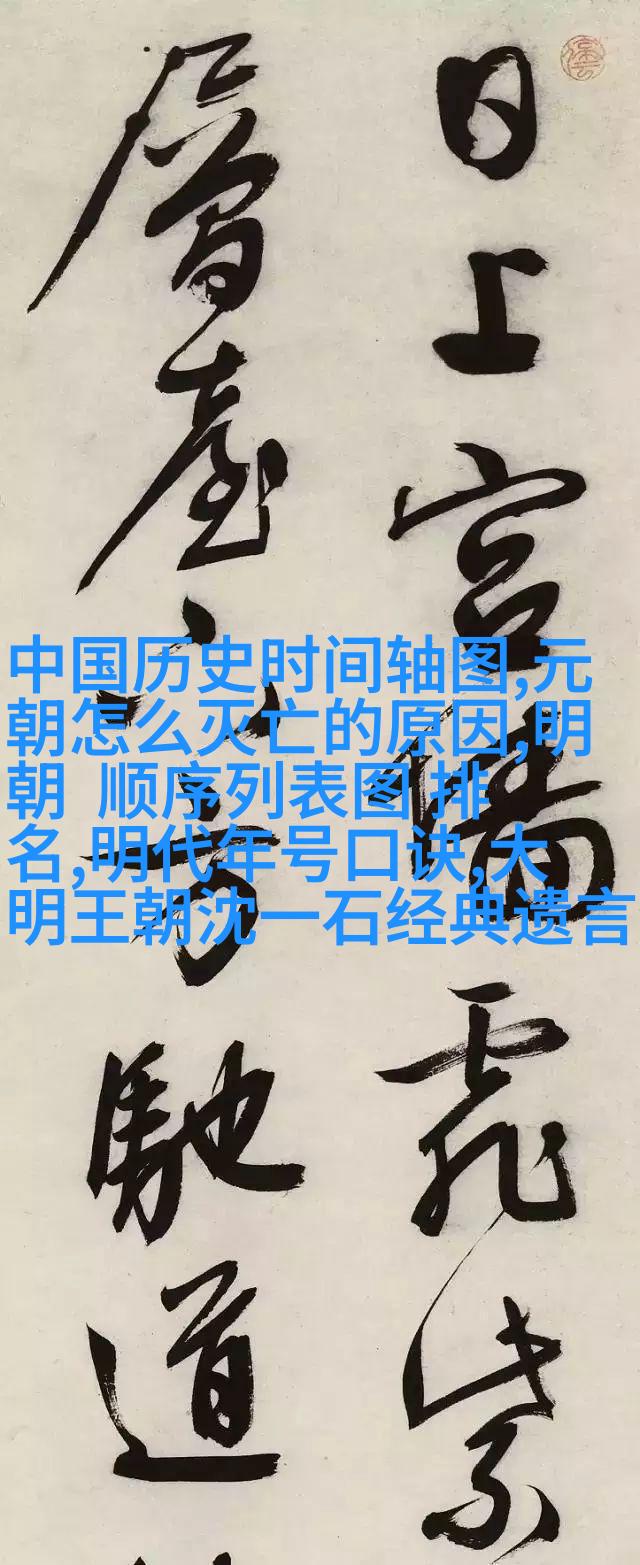 日上宮墻飛紫
層臺下方馳道
中国历史时间轴图,元
朝怎么灭亡的原因,明
朝 顺序列表图 排
名,明代年号口诀,大
明王朝沈一石经典遗言